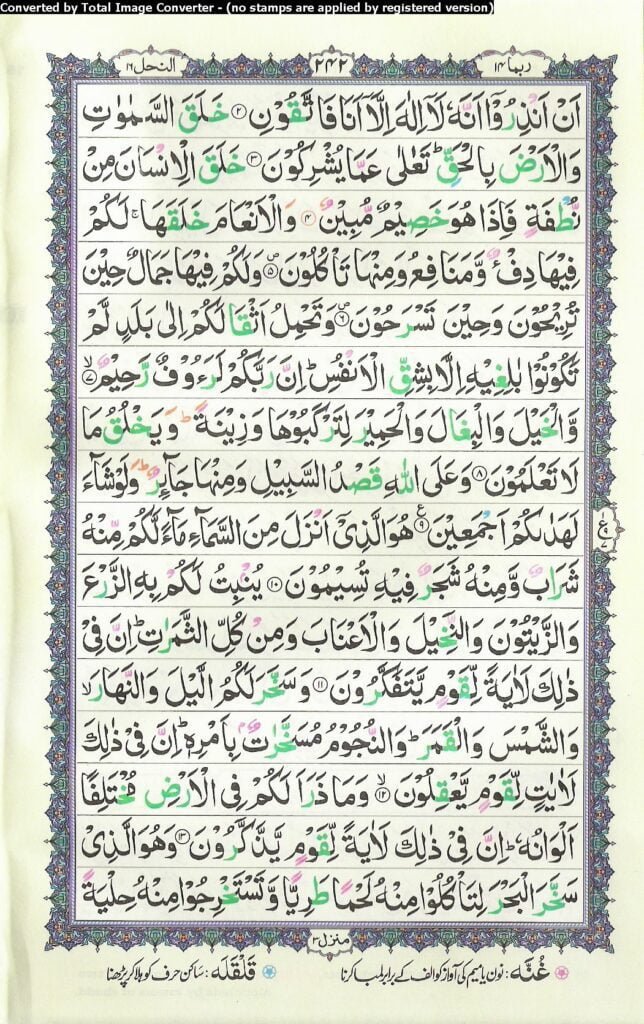 Converted by Total Image Converter - (no stamps are applied by registered version)
ربما ١٤ ٢٤٢ النحل ١٦
اَنْ اَنْذِرُوْۤا اَنَّهٗ لَاۤ اِلٰهَ اِلَّاۤ اَنَا فَاتَّقُوْنِ ۲ خَلَقَ السَّمٰوٰتِ
وَالْاَرْضَ بِالْحَقِّ ؕ تَعٰلٰى عَمَّا يُشْرِكُوْنَ ۳ خَلَقَ الْاِنْسَانَ مِنْ
نُّطْفَةٍ فَاِذَا هُوَ خَصِيْمٌ مُّبِيْنٌ ۴ وَالْاَنْعَامَ خَلَقَهَا ۚ لَكُمْ
فِيْهَا دِفْءٌ وَّمَنَافِعُ وَمِنْهَا تَاْكُلُوْنَ ۵ وَلَكُمْ فِيْهَا جَمَالٌ حِيْنَ
تُرِيْحُوْنَ وَحِيْنَ تَسْرَحُوْنَ ۶ وَتَحْمِلُ اَثْقَالَكُمْ اِلٰى بَلَدٍ لَّمْ
تَكُوْنُوْا بٰلِغِيْهِ اِلَّا بِشِقِّ الْاَنْفُسِ ؕ اِنَّ رَبَّكُمْ لَرَءُوْفٌ رَّحِيْمٌ ۷
وَّالْخَيْلَ وَالْبِغَالَ وَالْحَمِيْرَ لِتَرْكَبُوْهَا وَزِيْنَةً ؕ وَيَخْلُقُ مَا
لَا تَعْلَمُوْنَ ۸ وَعَلَى اللّٰهِ قَصْدُ السَّبِيْلِ وَمِنْهَا جَآئِرٌ ؕ وَلَوْ شَآءَ
لَهَدٰىكُمْ اَجْمَعِيْنَ ۹ هُوَ الَّذِيْۤ اَنْزَلَ مِنَ السَّمَآءِ مَآءً لَّكُمْ مِّنْهُ
شَرَابٌ وَّمِنْهُ شَجَرٌ فِيْهِ تُسِيْمُوْنَ ۱۰ يُنْۢبِتُ لَكُمْ بِهِ الزَّرْعَ
وَالزَّيْتُوْنَ وَالنَّخِيْلَ وَالْاَعْنَابَ وَمِنْ كُلِّ الثَّمَرٰتِ ؕ اِنَّ فِيْ
ذٰلِكَ لَاٰيَةً لِّقَوْمٍ يَّتَفَكَّرُوْنَ ۱۱ وَسَخَّرَ لَكُمُ الَّيْلَ وَالنَّهَارَ ۙ
وَالشَّمْسَ وَالْقَمَرَ ؕ وَالنُّجُوْمُ مُسَخَّرٰتٌۢ بِاَمْرِهٖ ؕ اِنَّ فِيْ ذٰلِكَ
لَاٰيٰتٍ لِّقَوْمٍ يَّعْقِلُوْنَ ۱۲ وَمَا ذَرَاَ لَكُمْ فِي الْاَرْضِ مُخْتَلِفًا
اَلْوَانُهٗ ؕ اِنَّ فِيْ ذٰلِكَ لَاٰيَةً لِّقَوْمٍ يَّذَّكَّرُوْنَ ۱۳ وَهُوَ الَّذِيْ
سَخَّرَ الْبَحْرَ لِتَاْكُلُوْا مِنْهُ لَحْمًا طَرِيًّا وَّتَسْتَخْرِجُوْا مِنْهُ حِلْيَةً
منزل ۳
غُنَّه : نون یا میم کی آواز کو الف کے برابر لمبا کرنا قَلْقَلَه : ساکن حرف کو ہلا کر پڑھنا